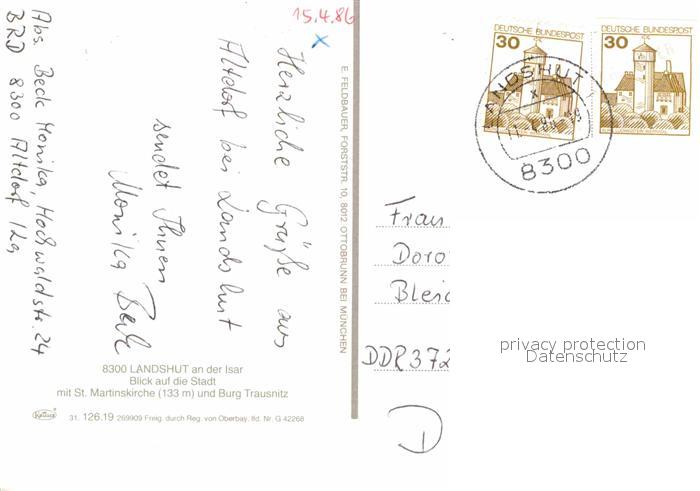 15.4.86
x
Abs. Beck Monika, Hochwaldstr. 24
BRD 8300 Altdorf / La
Herzliche Grüße aus
Altdorf bei Landshut
sendet Ihnen
Monika Beck
8300 LANDSHUT an der Isar
Blick auf die Stadt
mit St. Martinskirche (133 m) und Burg Trausnitz
31. 126.19 269909 Freig. durch Reg. von Oberbay. lfd. Nr. G 42268
E. FELDBAUER, FORSTSTR. 10, 8012 OTTOBRUNN BEI MÜNCHEN
DEUTSCHE BUNDESPOST
30
DEUTSCHE BUNDESPOST
30
LANDSHUT
8300
Frau
Doro
Bleic
DDR 372
D
privacy protection
Datenschutz